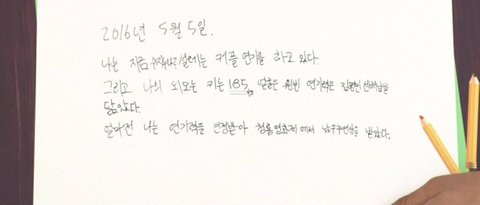 2016년 5월 5일.
나는 지금 설레는 커플 연기를 하고 있다.
그리고 나의 외모는 키는 185, 얼굴은 원빈 연기력은
닮았다.
얼마전 나는 연기력을 인정받아 청룡영화제에서 남우주연상을 받았다.